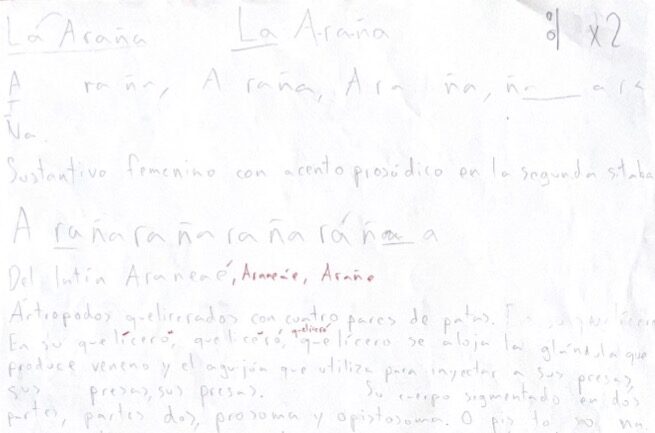 La Araña La Araña x2
A raña, A raña, Ara ña, ña___ ara
Ña.
Sustantivo femenino con acento prosódico en la segunda sílaba
A rañarañarañaráñaa a
Del latín Araneaé, Araneáe, Araña
Artrópodos quelicerados con cuatro pares de patas.
En su quelíceró, quelíceró, quelíceró quelícero se aloja la glándula que
produce veneno y el aguijón que utiliza para inyectar a sus presas,
sus presas, sus presas. Su cuerpo segmentado en dos
partes, partes dos, prosoma y opistosoma. O pis to so ma